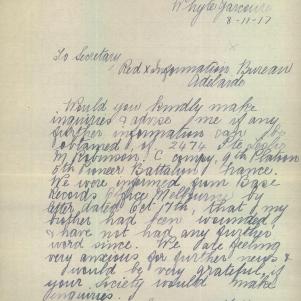 Whyte Yarcowie
8-11-17
To Secretary,
Red X Information Bureau
Adelaide
Would you kindly make
inquiries & advise me if any
further information can be
obtained of 2474 Pte
M Robinson, C Compy, 9th Platoon
5th Pioneer Battalion France.
We were informed from Base
Records Office Melbourne by
letter dated Oct that my
brother had been wounded
& have not had any further
word since. We are feeling
very anxious for further news &
would be very grateful if
your Society would make
inquiries.